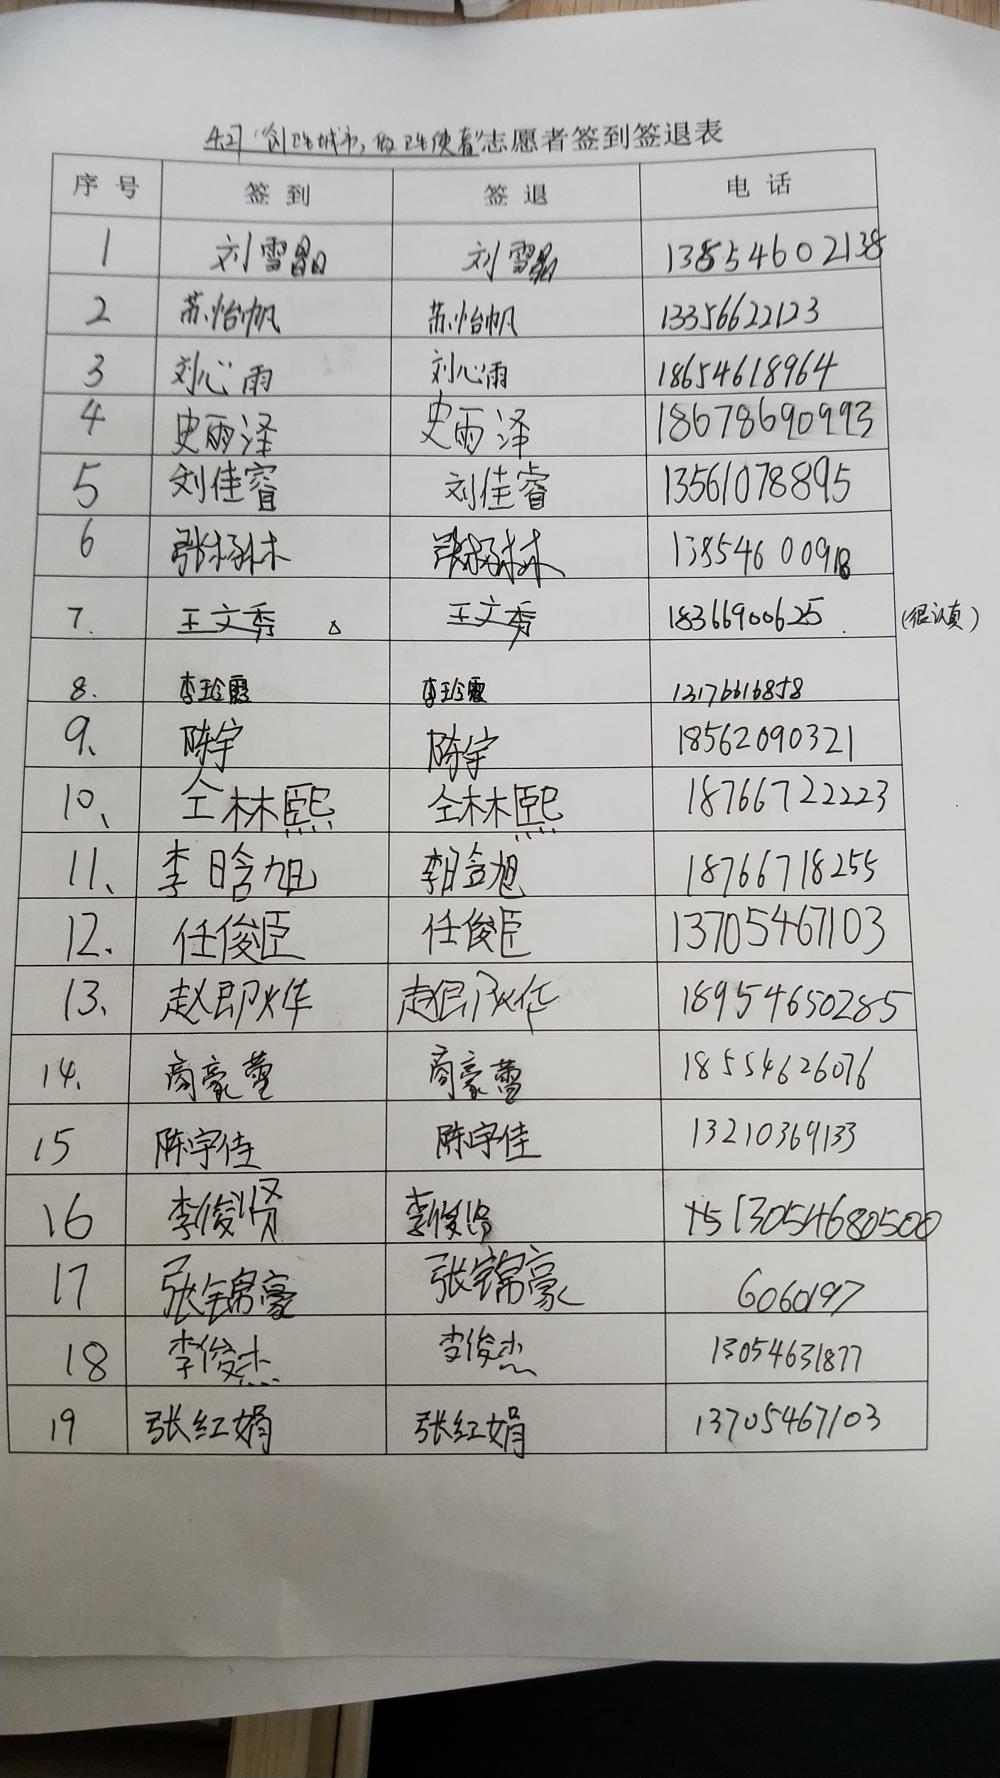 4.27 "创卫生城市，做卫生使者"志愿者签到签退表
序号 签到 签退 电话
1 刘雪晶 刘雪晶 13854602138
2 苏怡帆 苏怡帆 13356622123
3 刘心雨 刘心雨 18654618964
4 史雨泽 史雨泽 18678690993
5 刘佳睿 刘佳睿 13561078895
6 张杨林 张杨林 13854600918
7. 王文秀 △ 王文秀 18366900625. (很认真)
8. 李珍霞 李珍霞 13176616858
9、 陈宇 陈宇 18562090321
10、 仝林熙 仝林熙 18766722223
11、 李晗旭 李晗旭 18766718255
12. 任俊臣 任俊臣 13705467103
13、 赵郡烨 赵郡烨 18954650285
14. 商豪蕾 商豪蕾 18554626076
15 陈宇佳 陈宇佳 13210369133
16 李俊贤 李俊贤 13054680500
17 张锦豪 张锦豪 6060197
18 李俊杰 李俊杰 13054631877
19 张红娟 张红娟 13705467103